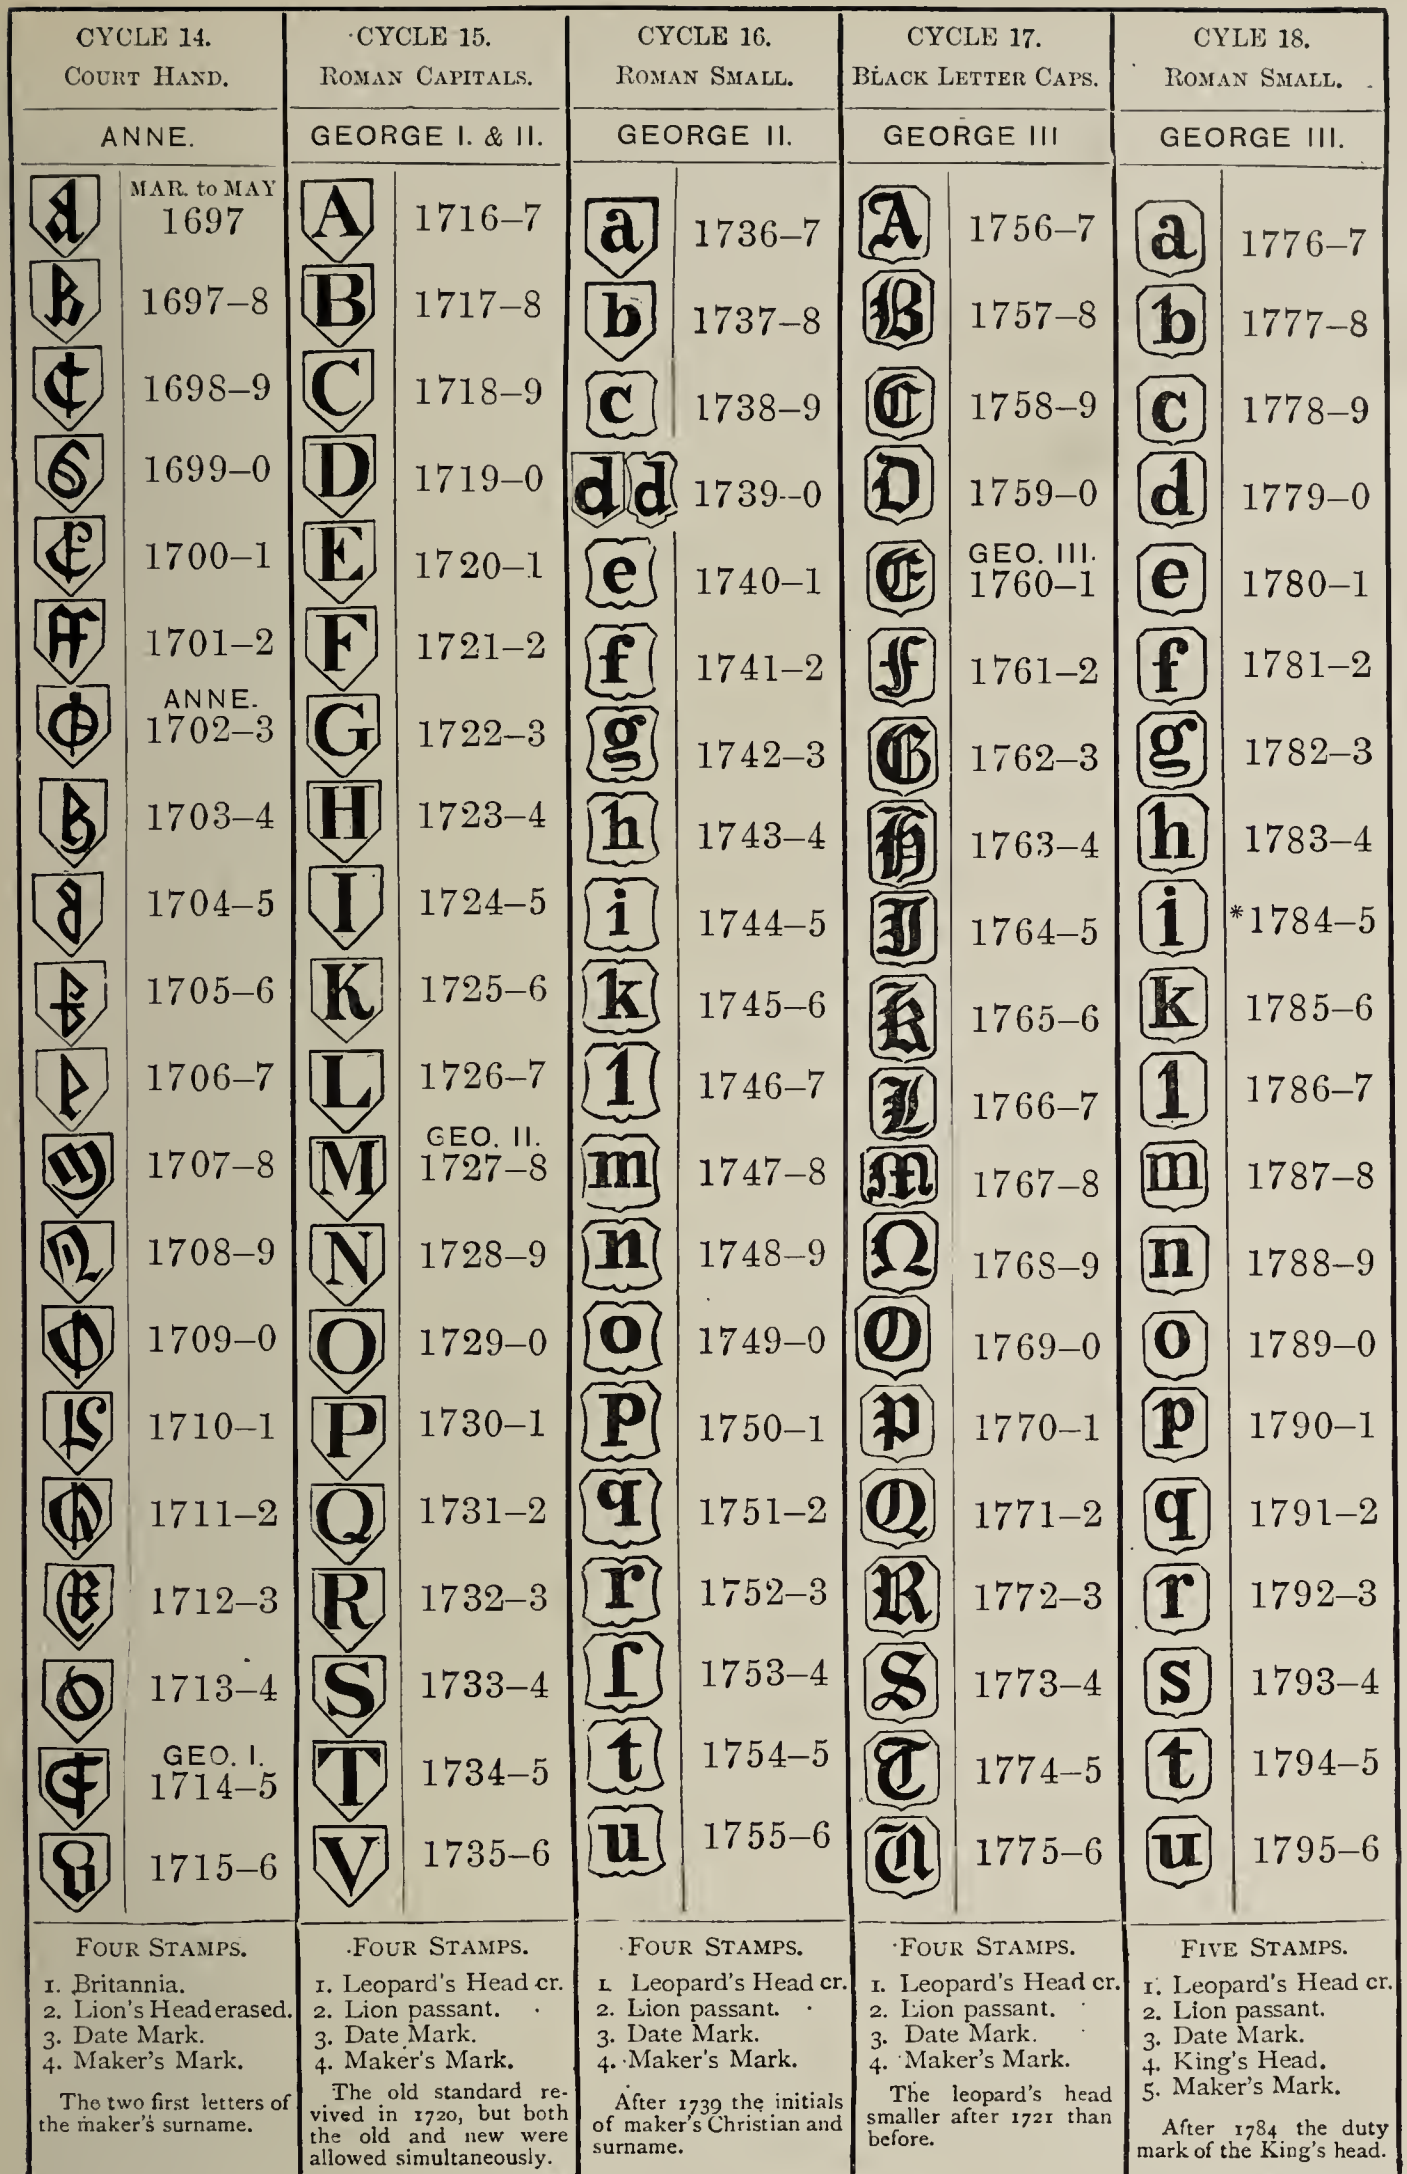 CYCLE 14.
COURT HAND.
ANNE.
MAR. to MAY
1697
1697–8
1698–9
1699–0
1700–1
1701–2
ANNE.
1702–3
1703–4
1704–5
1705–6
1706–7
1707–8
1708–9
1709–0
1710–1
1711–2
1712–3
1713–4
GEO. I.
1714–5
1715–6
FOUR STAMPS.
1. Britannia.
2. Lion's Head erased.
3. Date Mark.
4. Maker's Mark.
The two first letters of
the maker's surname.
CYCLE 15.
ROMAN CAPITALS.
GEORGE I. & II.
A 1716–7
B 1717–8
C 1718–9
D 1719–0
E 1720–1
F 1721–2
G 1722–3
H 1723–4
I 1724–5
K 1725–6
L 1726–7
GEO. II.
M 1727–8
N 1728–9
O 1729–0
P 1730–1
Q 1731–2
R 1732–3
S 1733–4
T 1734–5
V 1735–6
FOUR STAMPS.
1. Leopard's Head cr.
2. Lion passant.
3. Date Mark.
4. Maker's Mark.
The old standard re-
vived in 1720, but both
the old and new were
allowed simultaneously.
CYCLE 16.
ROMAN SMALL.
GEORGE II.
a 1736–7
b 1737–8
c 1738–9
d d 1739--0
e 1740–1
f 1741–2
g 1742–3
h 1743–4
i 1744–5
k 1745–6
l 1746–7
m 1747–8
n 1748–9
o 1749–0
p 1750–1
q 1751–2
r 1752–3
ſ 1753–4
t 1754–5
u 1755–6
FOUR STAMPS.
1. Leopard's Head cr.
2. Lion passant.
3. Date Mark.
4. Maker's Mark.
After 1739 the initials
of maker's Christian and
surname.
CYCLE 17.
BLACK LETTER CAPS.
GEORGE III
A 1756–7
B 1757–8
C 1758–9
D 1759–0
GEO. III.
E 1760–1
F 1761–2
G 1762–3
H 1763–4
I 1764–5
K 1765–6
L 1766–7
M 1767–8
N 1768–9
O 1769–0
P 1770–1
Q 1771–2
R 1772–3
S 1773–4
T 1774–5
U 1775–6
FOUR STAMPS.
1. Leopard's Head cr.
2. Lion passant.
3. Date Mark.
4. Maker's Mark.
The leopard's head
smaller after 1721 than
before.
CYLE 18.
ROMAN SMALL.
GEORGE III.
a 1776–7
b 1777–8
c 1778–9
d 1779–0
e 1780–1
f 1781–2
g 1782–3
h 1783–4
i *1784–5
k 1785–6
l 1786–7
m 1787–8
n 1788–9
o 1789–0
p 1790–1
q 1791–2
r 1792–3
s 1793–4
t 1794–5
u 1795–6
FIVE STAMPS.
1. Leopard's Head cr.
2. Lion passant.
3. Date Mark.
4. King's Head.
5. Maker's Mark.
After 1784 the duty
mark of the King's head.